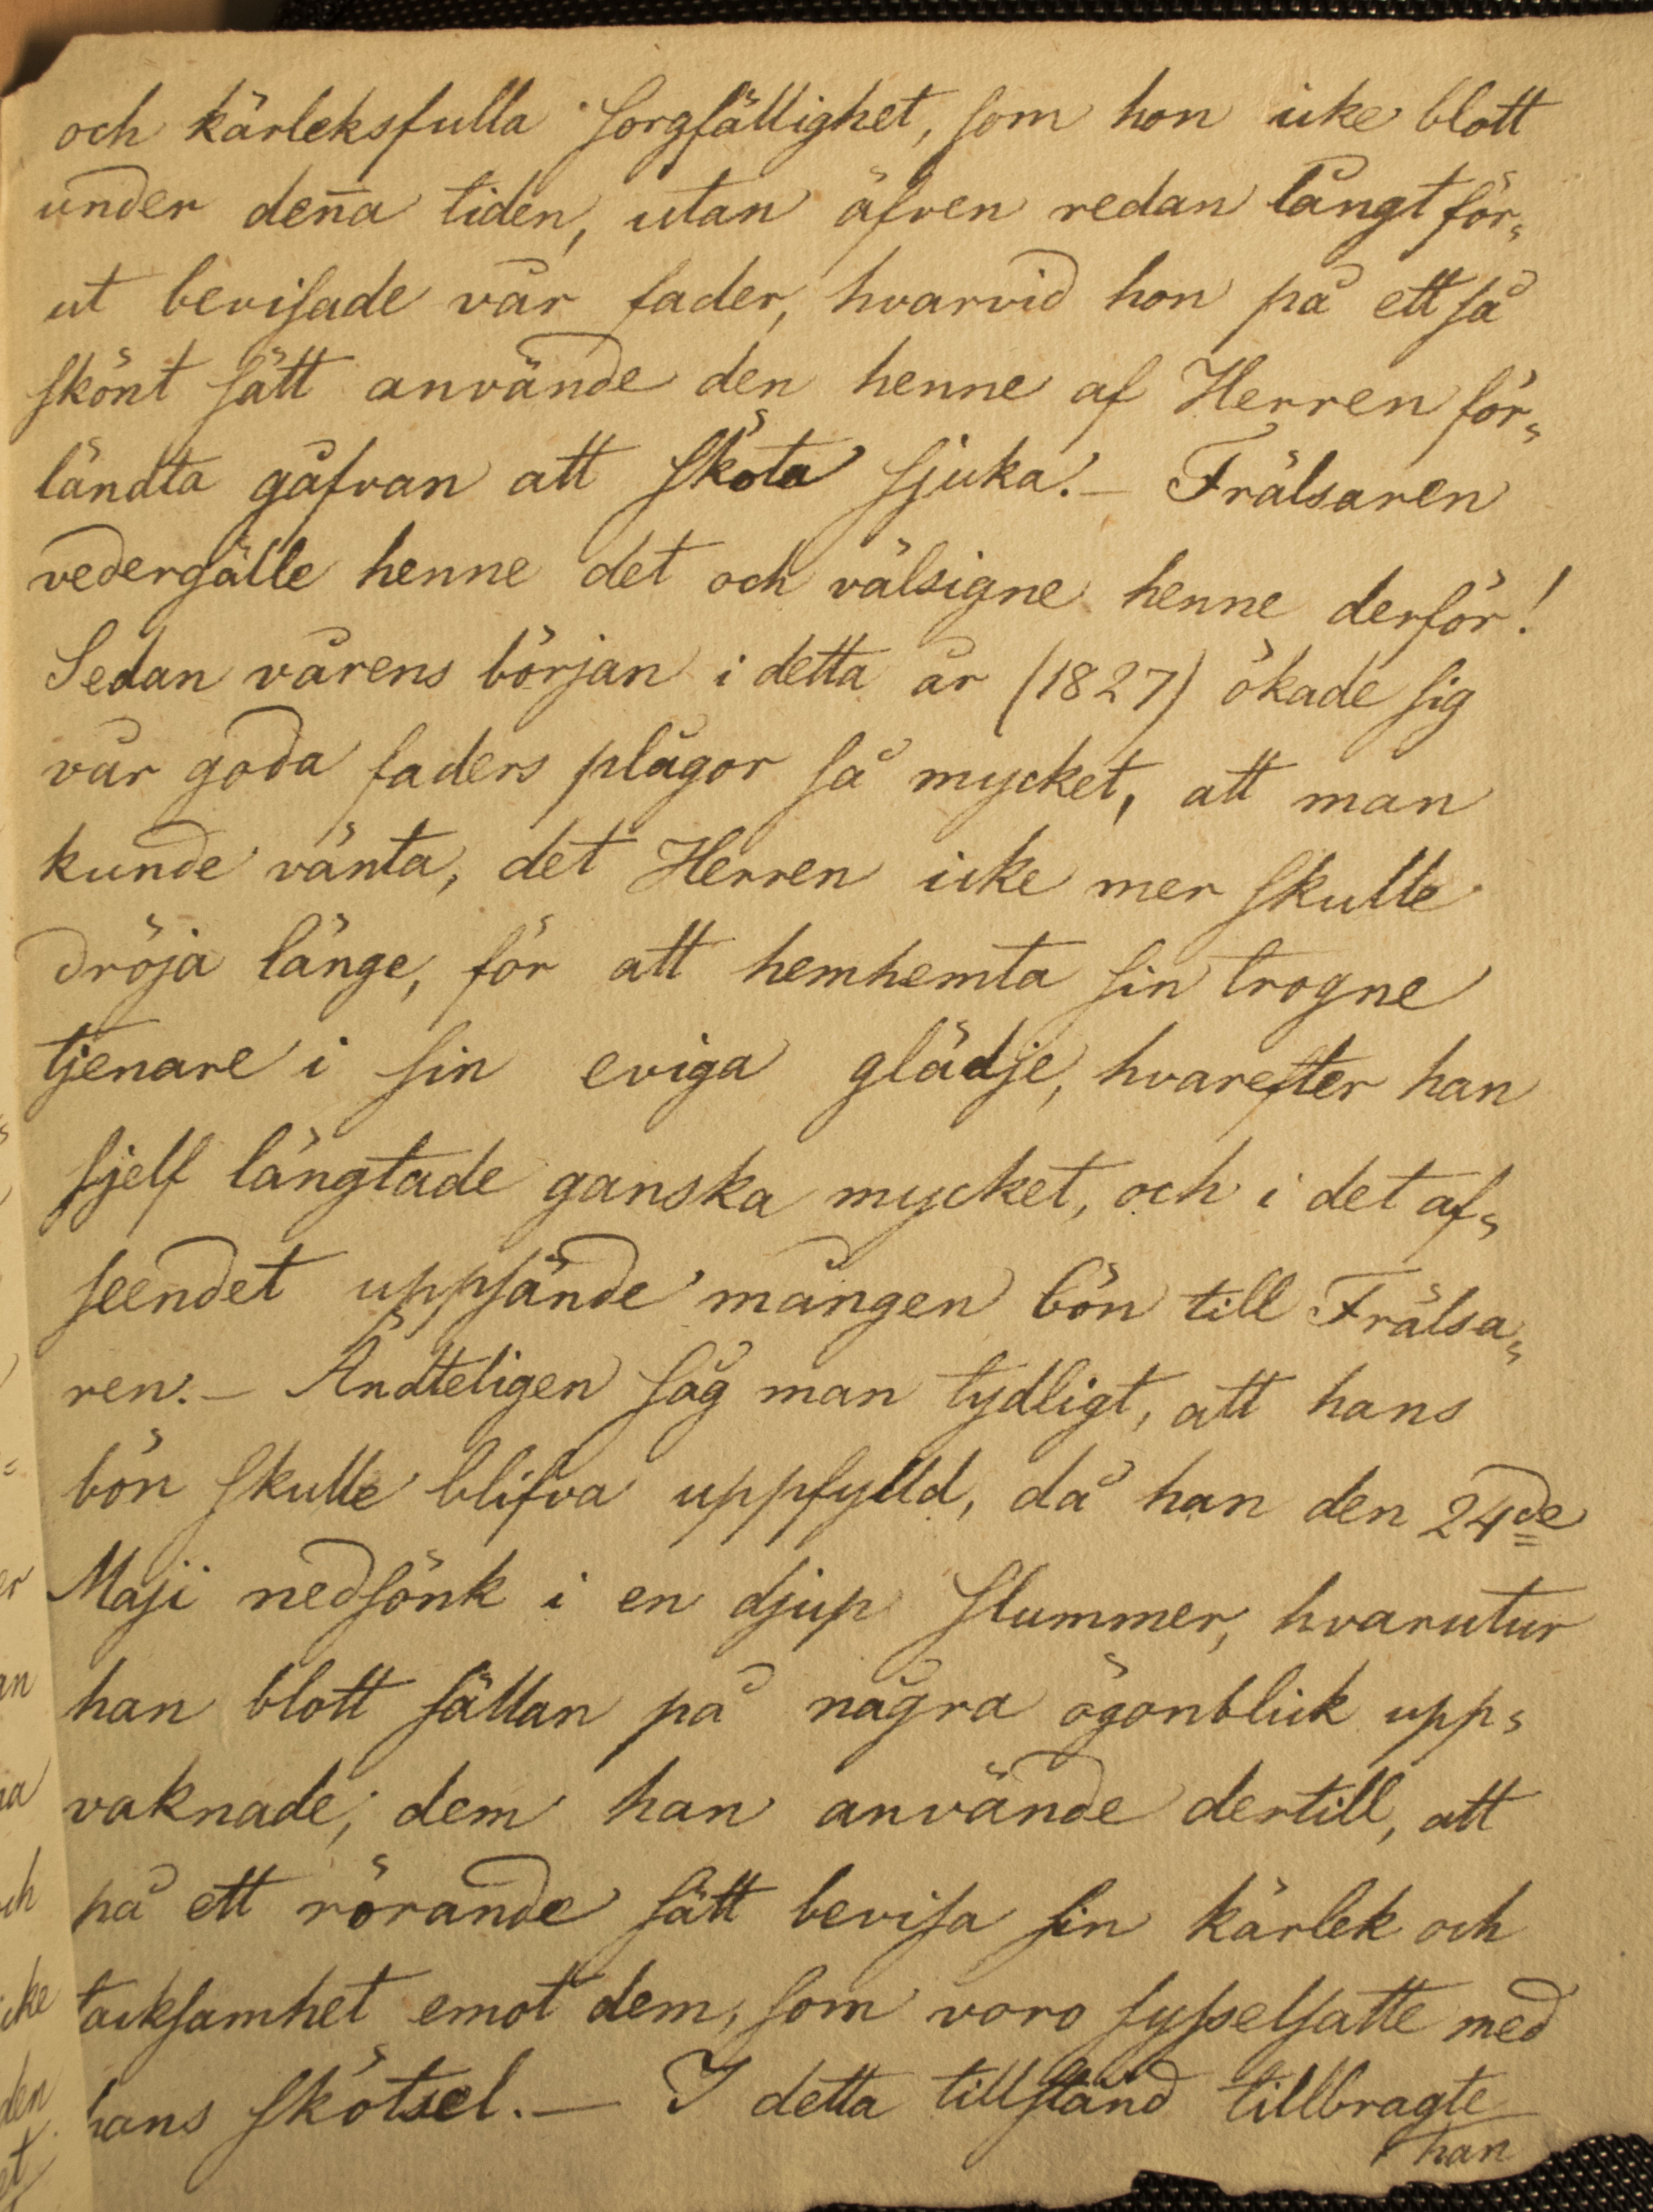 och kärleksfulla sorgfällighet, som hon icke blott
under den̄a tiden, utan äfven redan långt för„
ut bevisade vår fader, hvarvid hon på ett så
skönt sätt använde den henne af Herren för„
ländta gåfvan att sköta sjuka. – Frälsaren
vedergälle henne det och välsigne henne derför!
Sedan vårens början i detta år (1827) ökade sig
vår goda faders plågor så mycket, att man
kunde vänta, det Herren icke mer skulle
dröja länge, för att hemhemta sin trogne
tjenare i sin eviga glädje, hvarefter han
sjelf längtade ganska mycket, och i det af„
seendet uppsände mången bön till Frälsa„
ren. – Ändteligen såg man tydligt, att hans
bön skulle blifva uppfylld, då han den 24de
Maji nedsönk i en djup slummer, hvarutur
han blott sällan på några ögonblick upp„
vaknade; dem han använde dertill, att
på ett rörande sätt bevisa sin kärlek och
tacksamhet emot dem, som voro sysselsatte med
hans skötsel. — I detta tillstånd tillbragte
han